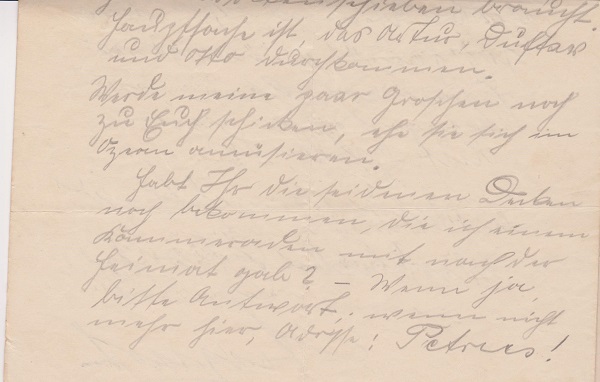 schieben braucht.
Hauptsache ist, das Artur, Gustav
und Otto durchkommen.
Werde meine paar Groschen noch
zu Euch schicken, ehe sie sich im
Ozean amüsieren.
Habt Ihr die seidenen Decken
noch bekommen, die ich einem
Kammeraden mit nach der
Heimat gab? – Wenn ja,
bitte Antwort, wenn nicht
mehr hier, Adresse: Petrus!